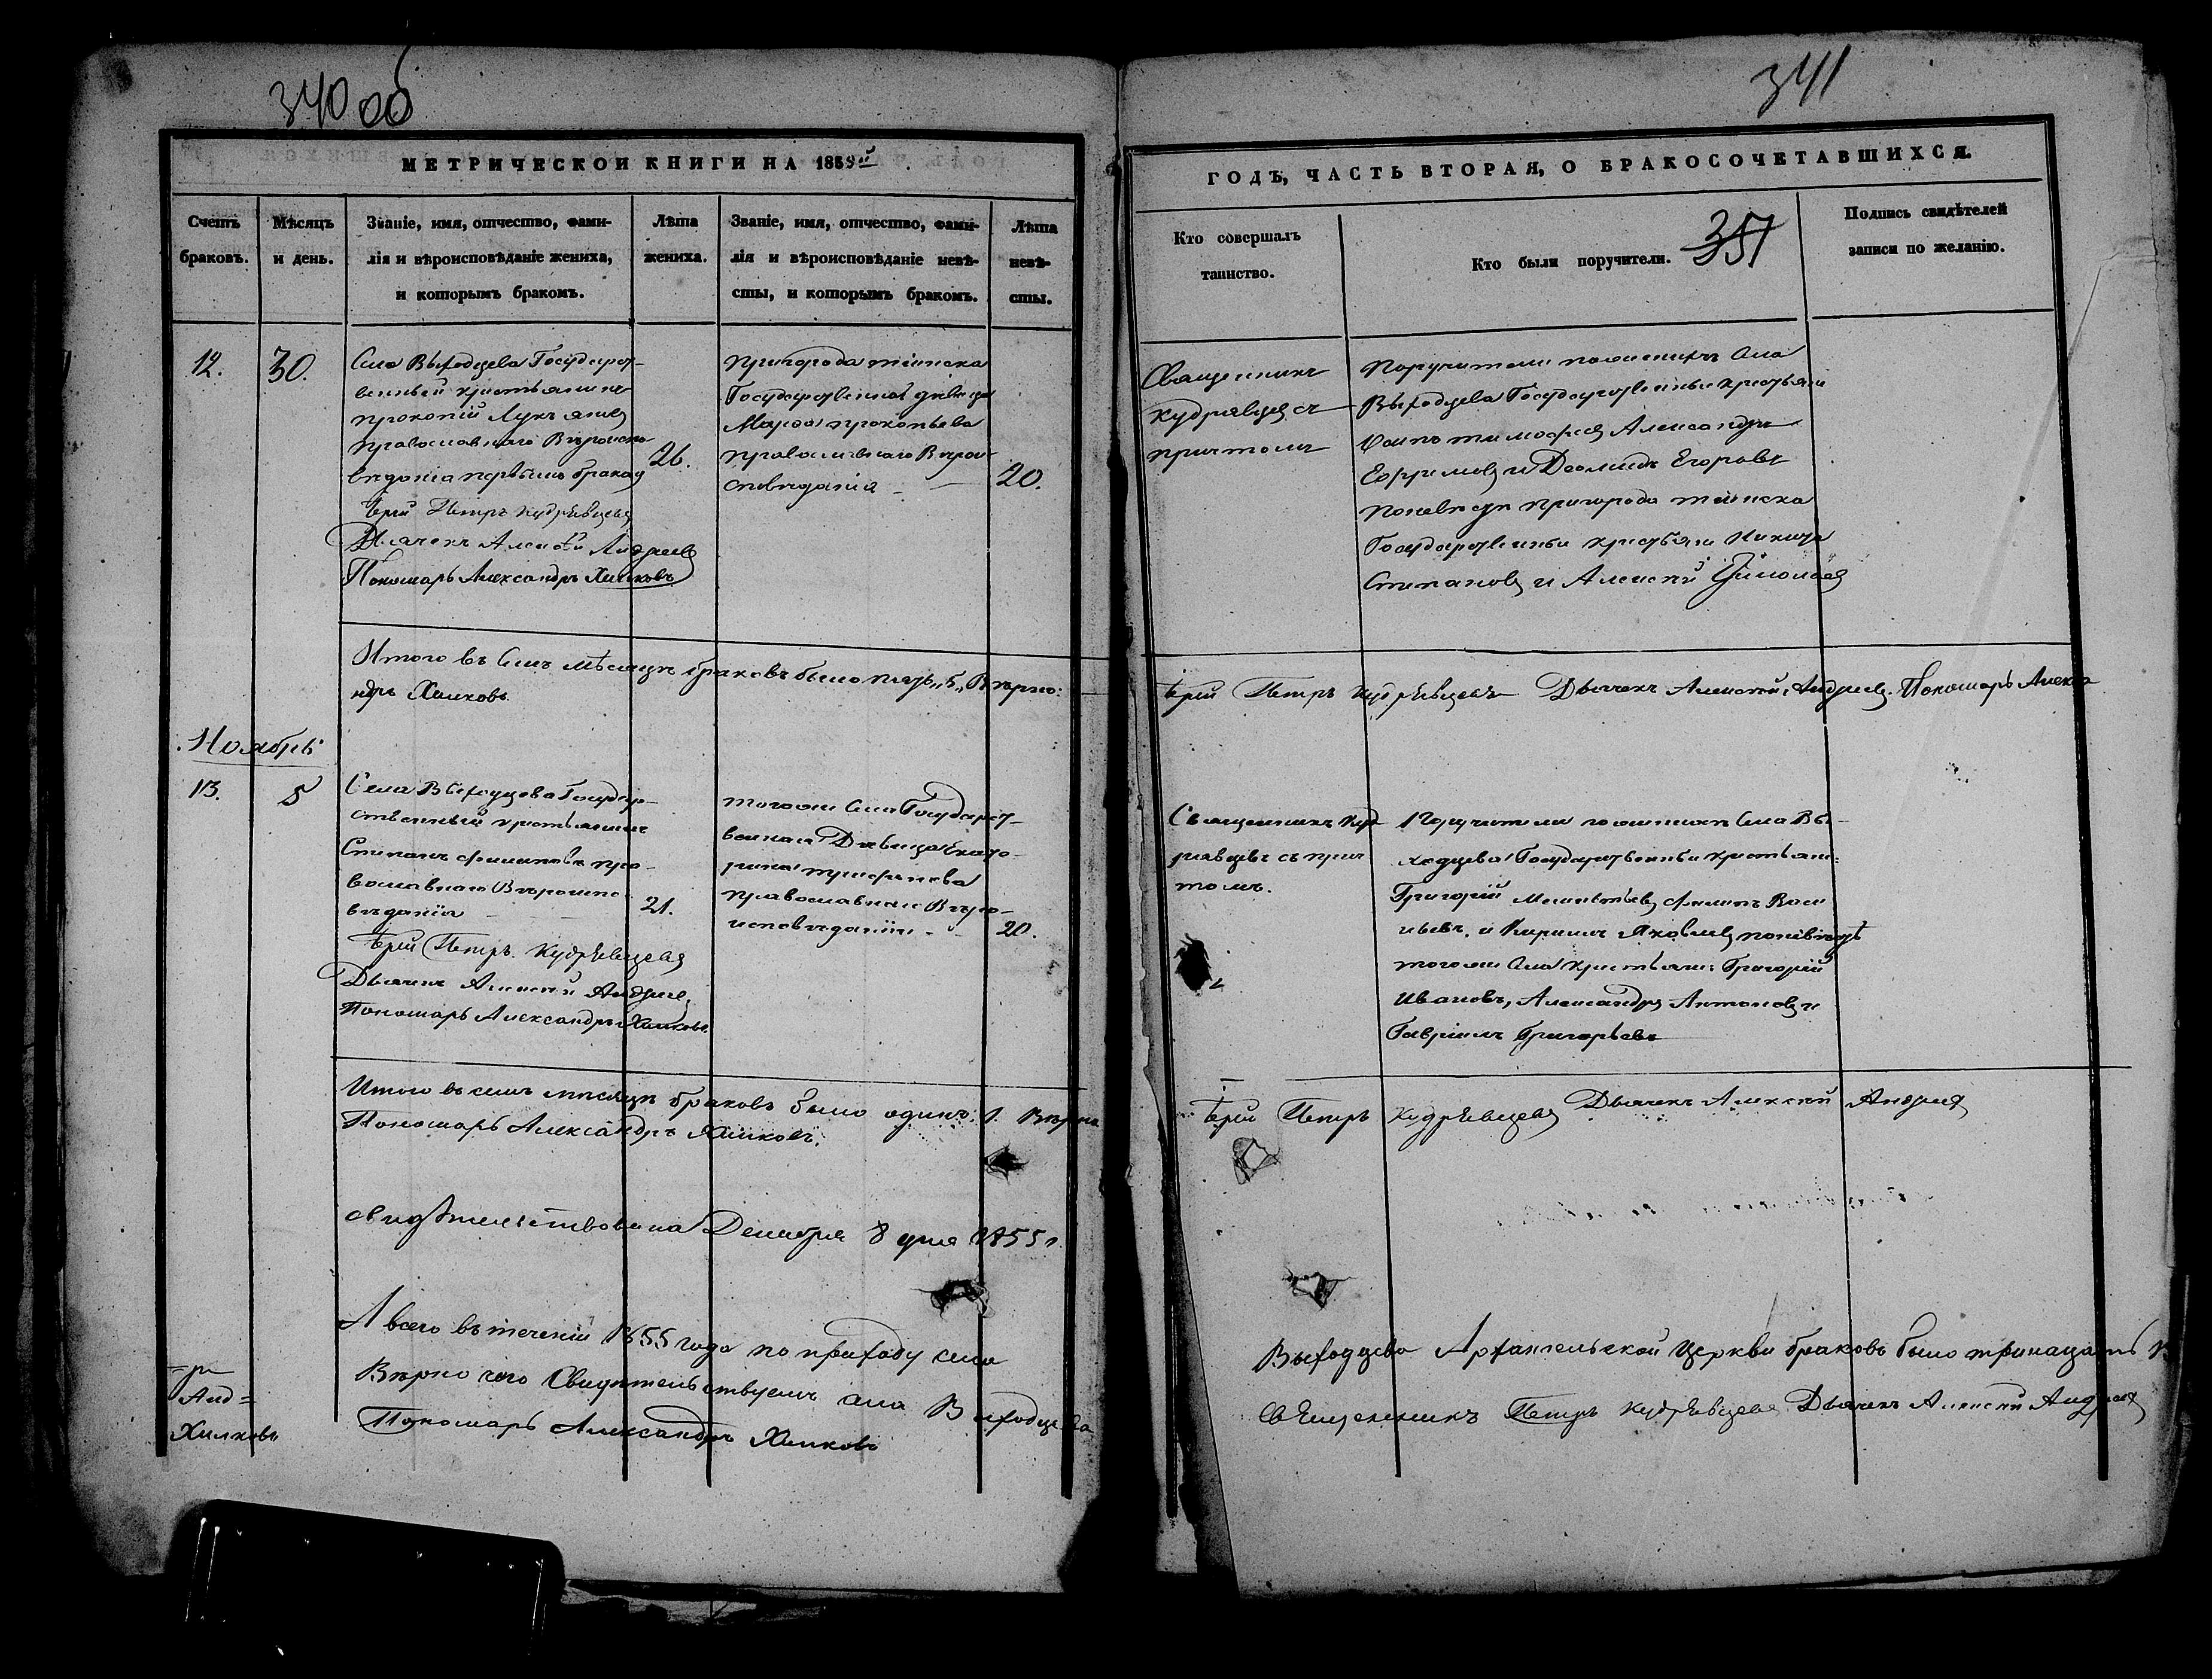 340 об
341
МЕТРИЧЕСКОЙ КНИГИ НА 1855й
ГОДЪ, ЧАСТЬ ВТОРАЯ, О БРАКОСОЧЕТАВШИХСЯ.
Счетъ
браковъ.
Мѣсяцъ
и день.
Званіе, имя, отчество, фами-
лія и вѣроисповѣданіе жениха,
и которымъ бракомъ.
Лѣта
жениха.
Званіе, имя, отчество, фами-
лія и вѣроисповѣданіе невѣ-
сты, и которымъ бракомъ.
Лѣта
невѣ-
сты.
Кто совершалъ
таинство.
Кто были поручители.
351
Подпись свидѣтелей
записи по желанію.
12.
30.
Села Выходцева Государст-
венный крестьянинъ
прокопій Лукьяновъ
православнаго Вѣроиспо-
вѣданія первымъ бракомъ
Іерей Петръ Кудрявцевъ
Дьячекъ Алексѣй Андреевъ
Пономарь Александръ Хилковъ
26.
пригорода тіинска
Государственная дѣвица
Марѳа прокопьева
православнаго Вѣрои-
сповѣданія
20.
Священникъ
Кудрявцевъ съ
причтомъ
Поручители по женихѣ Села
Выходцева Государственные крестьяне
тимофеевъ Александръ
Ефремовъ и Деомидъ Егоровъ
По невѣстѣ пригорода тіинска
Государственные крестьяне Никита
Степановъ и Алексѣй
Итого въ Семъ мѣсяцѣ браковъ было пять „5„ Вѣрно:
Іерей Петръ Кудрявцевъ Дьячекъ Алексѣй Андреевъ. Пономарь Алекса
ндръ Хилковъ.
Ноябрь
13.
5
Села Выходцева Государ-
ственный крестьянинъ
Степанъ Филиповъ пра-
вославнаго Вѣроиспо-
вѣданія
Іерей Петръ Кудрявцевъ
Дьячекъ Алексѣй Андреевъ
Пономарь Александръ Хилковъ.
21.
тогоже Села Государст-
венная Дѣвица Екате-
рина трифонова
православнаго Вѣро-
исповѣданія
20.
Священникъ Куд
рявцевъ съ прич
томъ.
Поручители по женихѣ Села Вы-
ходцева Государственные крестьяне:
Григорій Филипъ Васи
льевъ, и Кирилъ Яковлевъ по невѣстѣ
тогоже Села крестьяне: Григорій
Ивановъ, Александръ Антоновъ и
Гавріилъ Григорьевъ
Итого въ семъ мѣсяцѣ браковъ было одинъ. 1. Вѣрно
Іерей Петръ Кудрявцевъ Дьячекъ Алексѣй Андреевъ
Пономарь Александръ Хилковъ.
свидѣтельствована Декабря 8 дня 1855 г.
А всего въ теченіи 1855 года по приходу села
Выходцева Архангельской Церкви браковъ было тринадцать
Вѣрно чего Свидѣтельствуемъ села Выходцева
Священникъ Петръ Кудрявцевъ Дьячекъ Алексѣй Андреевъ
Пономарь Александръ Хилковъ
Анд=
Хилковъ